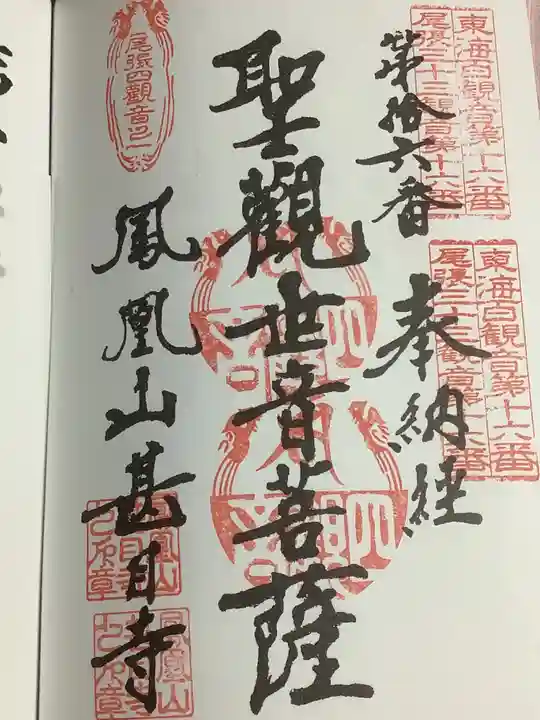 東海百観音第十六番
尾張三十三観音第十六番
第拾六番
東海百観音第十六番
尾張三十三観音第十六番
奉納経
聖觀世音菩薩
尾張四觀音之一
鳳凰山甚目寺
鳳凰山
鳳凰山